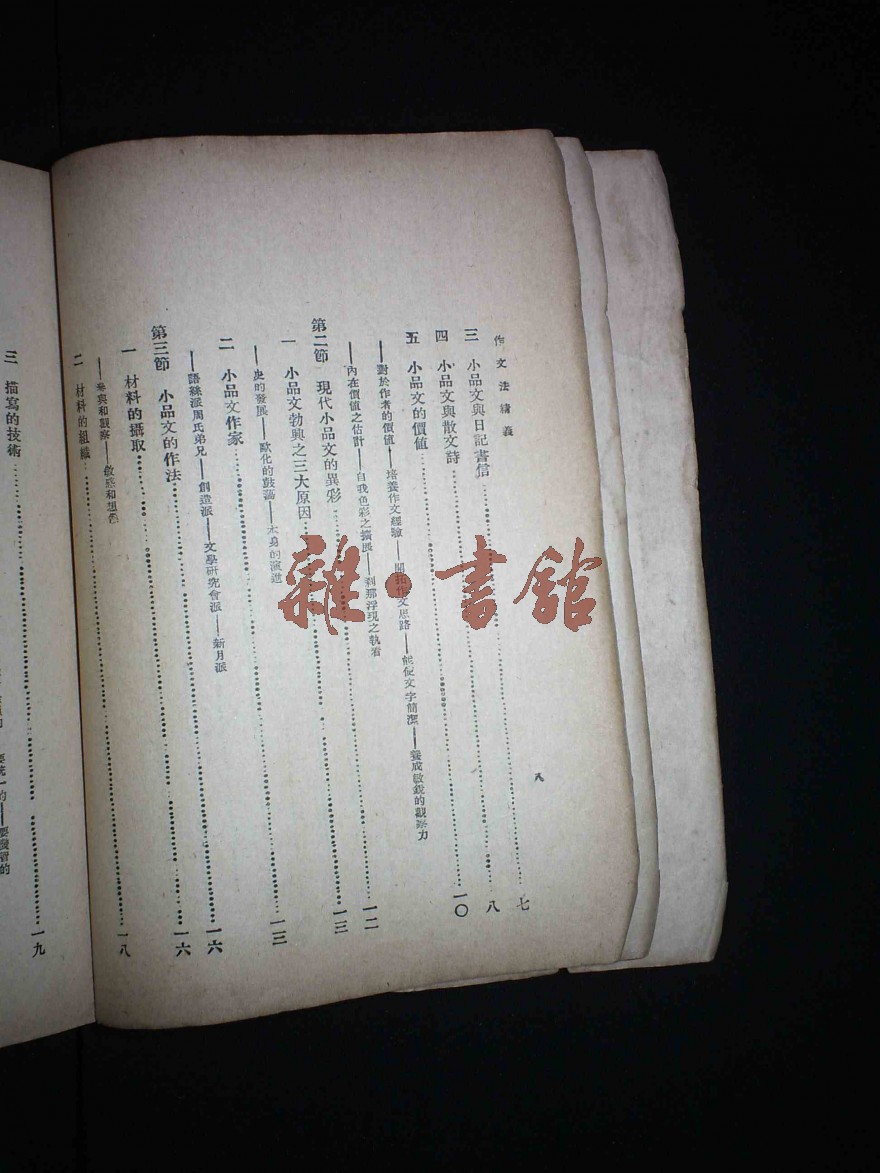 作文法精義
八
三 小品文與日記書信……七
四 小品文與散文詩……八
五 小品文的價值……一〇
——對於作者的價值——培養作文經驗——開拓作文思路——能使文字簡潔——養成敏銳的觀察力
——內在價值之估計——自我色彩之擴展——剎那浮現之執着
第二節 現代小品文的異彩……一二
一 小品文勃興之三大原因……一三
——史的發展——歐化的鼓蕩——本身的演進
二 小品文作家……一三
——語絲派周氏弟兄——創造派——文學研究會派——新月派
第三節 小品文的作法……一六
一 材料的攝取……一六
——參與和觀察——敏感和想像
二 材料的組織……一八
要統一的——要發習的
三 描寫的技術……一九
雜·書館